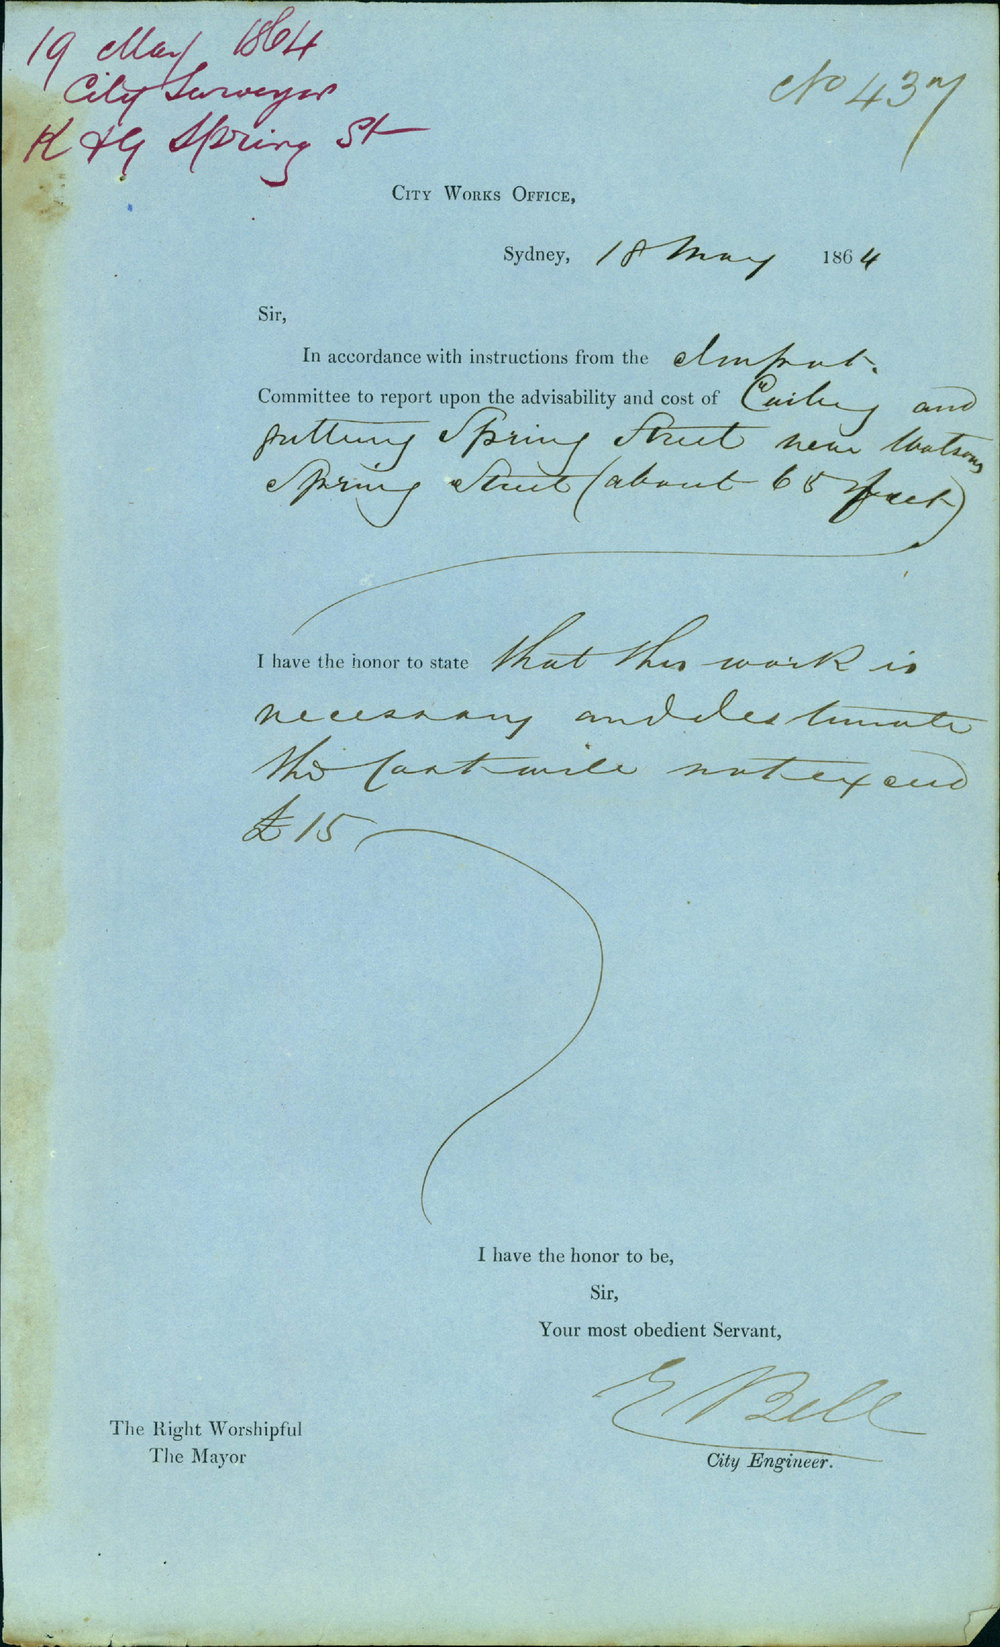 19 May 1864
City Surveyor
K & G Spring St
No 437
City Works Office,
Sydney, 18 May 1864
Sir,
In accordance with instructions from the Impvt.
Committee to report upon the advisability and cost of Curbing and
guttering Spring Street near Watsons
Spring Street (about 65 feet)
I have the honor to state that this work is
necessary and I estimate
the Cost will not exceed
£15
I have the honor to be,
Sir,
Your most obedient Servant,
E Bell
City Engineer.
The Right Worshipful
The Mayor